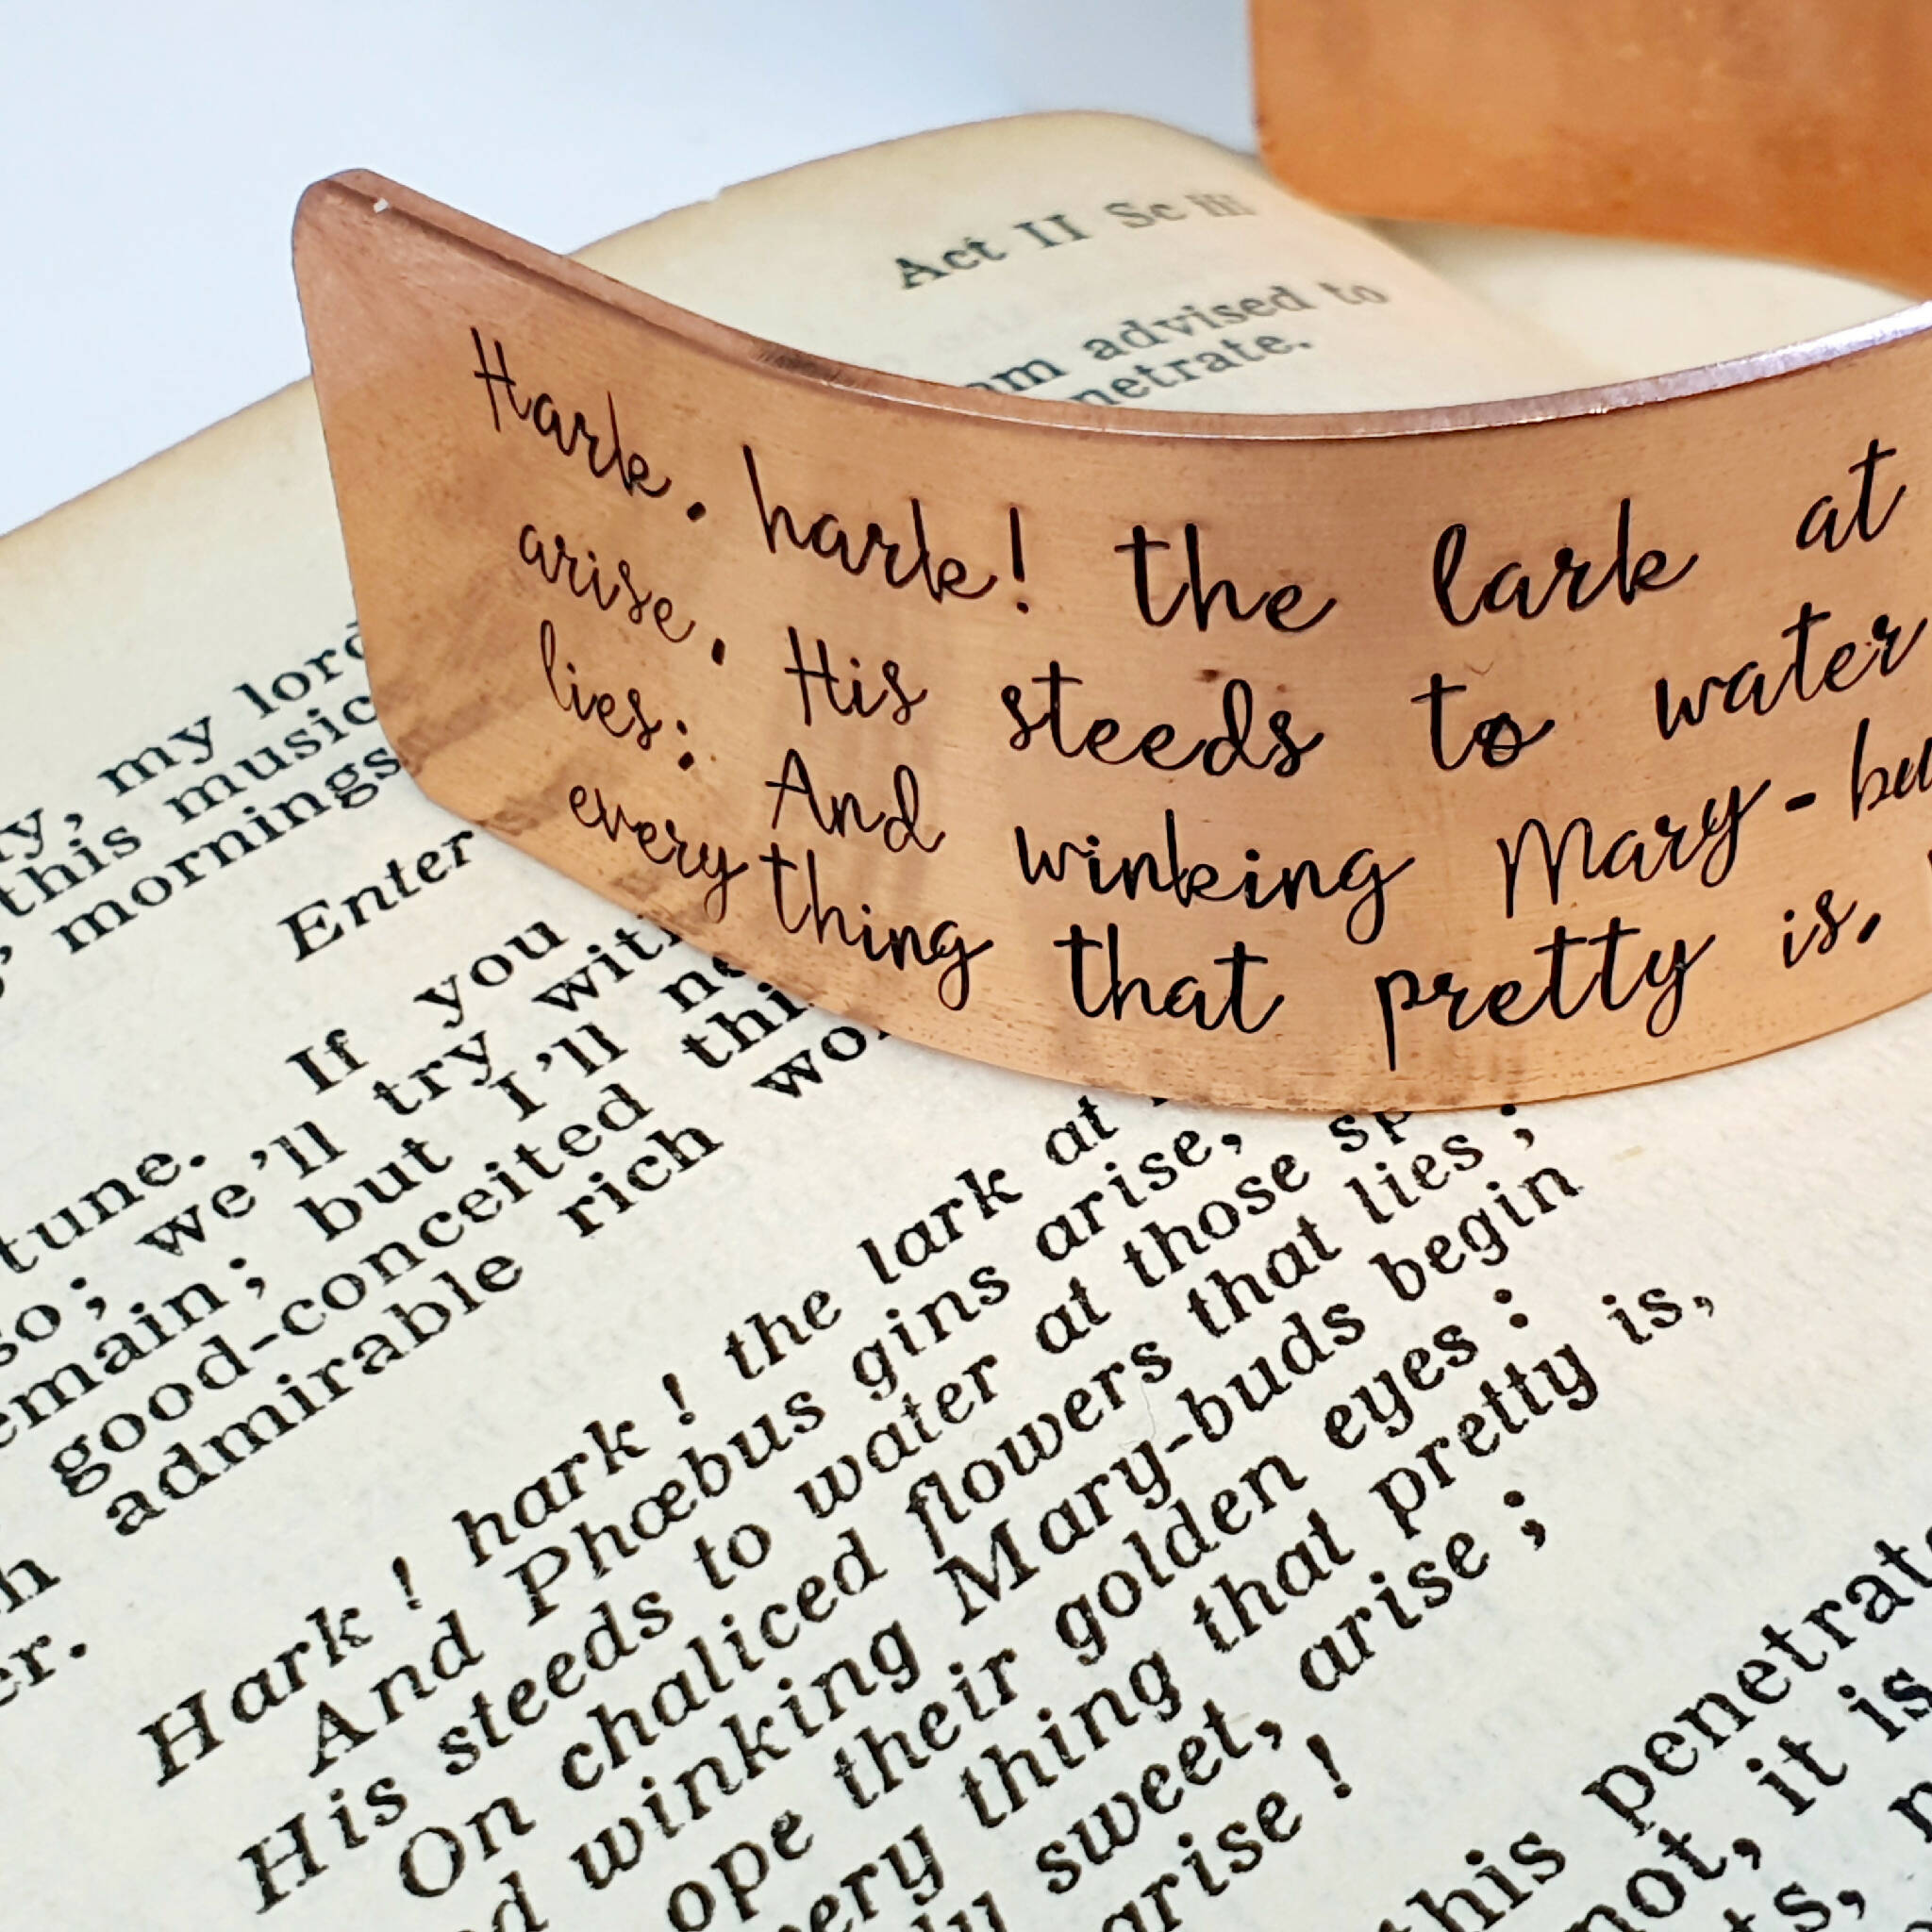 Act II Sc iii
am advised to
netrate.
Hark, hark! the lark at
arise, His steeds to water
lies; And winking Mary-bu
every thing that pretty is,
my lord
this music
mornings
Enter
If you
tune. try with
so; we'll but I'll
emain; thi
good-conceited wo
admirable rich
er.
Hark! hark! the lark at
And Phœbus gins arise,
His steeds to water at those sp
On chaliced flowers that lies;
winking Mary-buds begin
ope their golden eyes:
very thing that pretty is,
sweet, arise;
arise!
this penetrate
not, it is